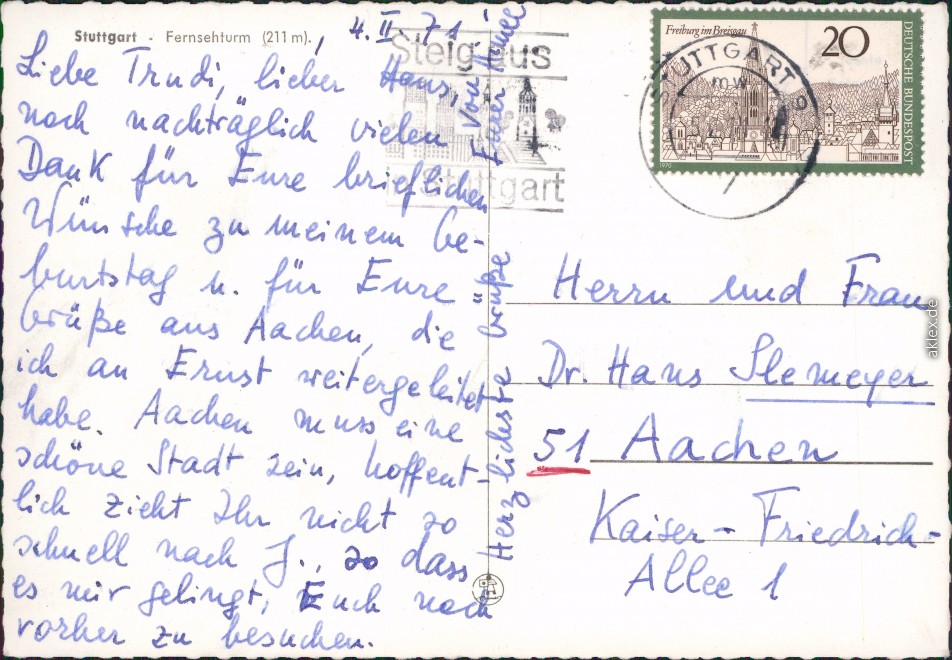 Stuttgart - Fernsehturm (211 m).
4. II. 71
Liebe Trudi, lieber Hans,
noch nachträglich vielen
Dank für Eure brieflichen
Wünsche zu meinem Ge-
burtstag u. für Eure
Grüße aus Aachen, die
ich an Ernst weitergeleitet
habe. Aachen muss eine
schöne Stadt sein, hoffent-
lich zieht Ihr nicht so
schnell nach J., so dass
es mir gelingt, Euch noch
vorher zu besuchen.
Herzlichste Grüße
von
Eurer
Steig aus
Stuttgart
STUTTGART 9
mw
Freiburg im Breisgau
20
DEUTSCHE BUNDESPOST
1970
Herrn und Frau
Dr. Hans Slemeyer
51 Aachen
Kaiser-Friedrich-
Allee 1
aklex.de